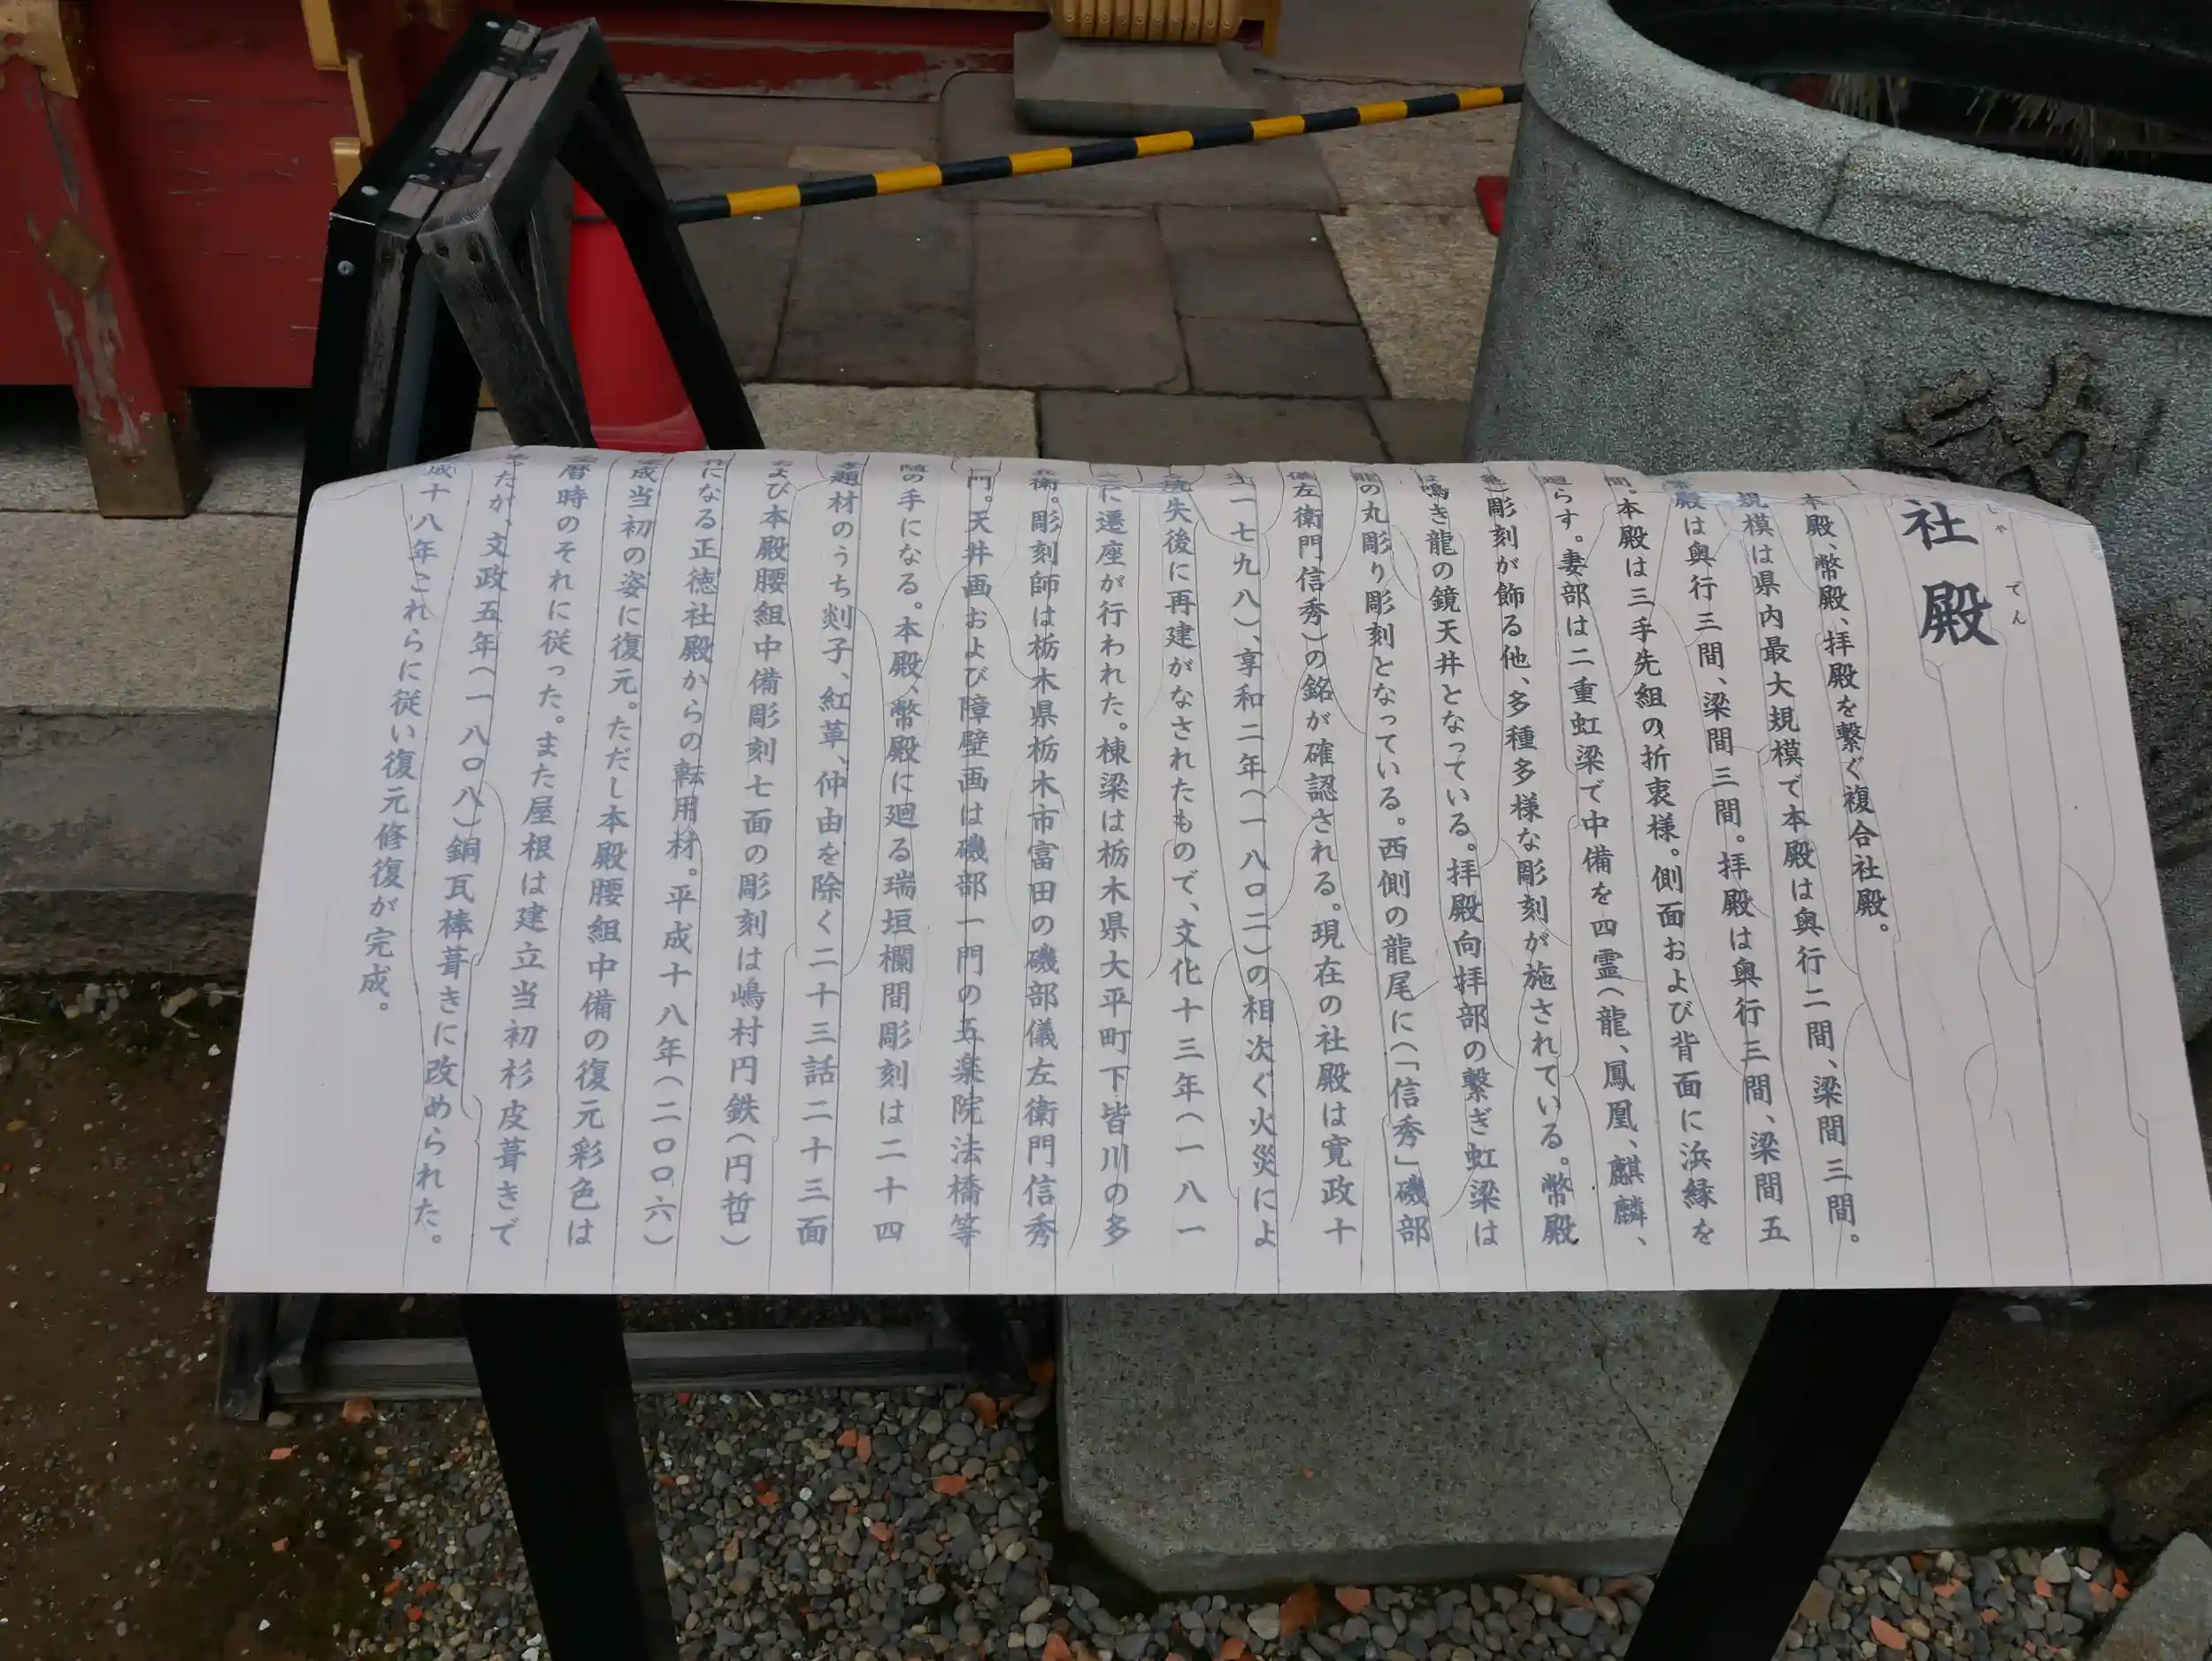 社殿
しゃでん
本殿、幣殿、拝殿を繋ぐ複合社殿。
規模は県内最大規模で本殿は奥行二間、梁間三間。
殿は奥行三間、梁間三間。拝殿は奥行三間、梁間五
間。本殿は三手先組の折衷様。側面および背面に浜縁を
廻らす。妻部は二重虹梁で中備を四霊(龍、鳳凰、麒麟、
彫刻が飾る他、多種多様な彫刻が施されている。幣殿
は鳴き龍の鏡天井となっている。拝殿向拝部の繋ぎ虹梁は
龍の丸彫り彫刻となっている。西側の龍尾に(「信秀」磯部
儀左衛門信秀)の銘が確認される。現在の社殿は寛政十
一七九八)、享和二年(一八〇二)の相次ぐ火災によ
焼失後に再建がなされたもので、文化十三年(一八一
に遷座が行われた。棟梁は栃木県大平町下皆川の多
衛。彫刻師は栃木県栃木市富田の磯部儀左衛門信秀
一門。天井画および障壁画は磯部一門の五楽院法橋等
随の手になる。本殿、幣殿に廻る瑞垣欄間彫刻は二十四
孝題材のうち剡子、紅革、仲由を除く二十三話二十三面
および本殿腰組中備彫刻七面の彫刻は嶋村円鉄(円哲)
になる正徳社殿からの転用材。平成十八年(二〇〇六)
成当初の姿に復元。ただし本殿腰組中備の復元彩色は
暦時のそれに従った。また屋根は建立当初杉皮葺きで
あったが、文政五年(一八〇八)銅瓦棒葺きに改められた。
成十八年これらに従い復元修復が完成。